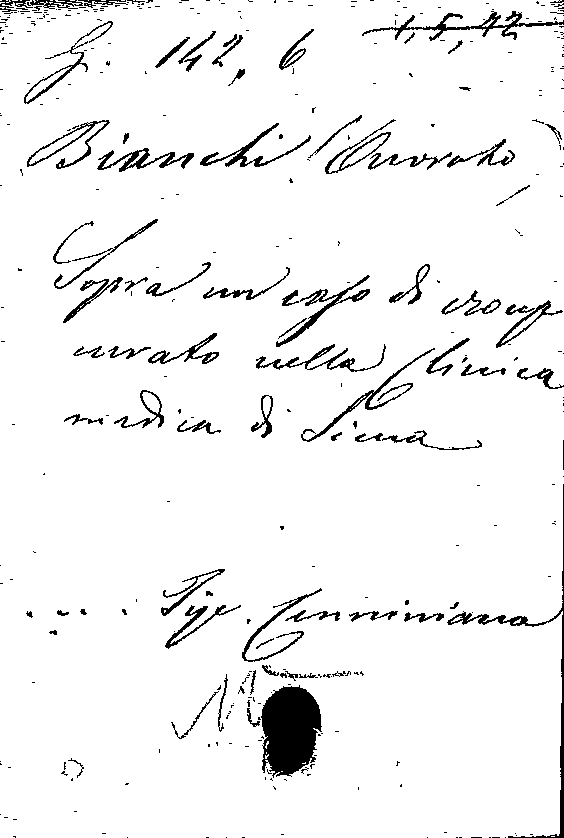 G. 142, 6 1, 5, 42
Bianchi (Onorato)
Sopra un caso di croup
curato nella Clinica
medica di Siena
.... Tip. Cenniniana
M